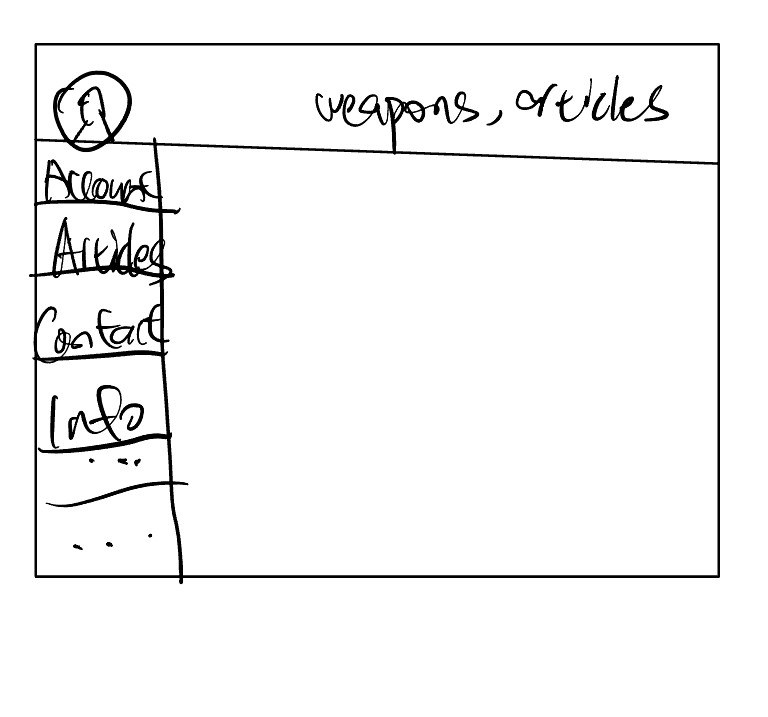 weapons, articles
Account
Articles
Contact
Info
...
...